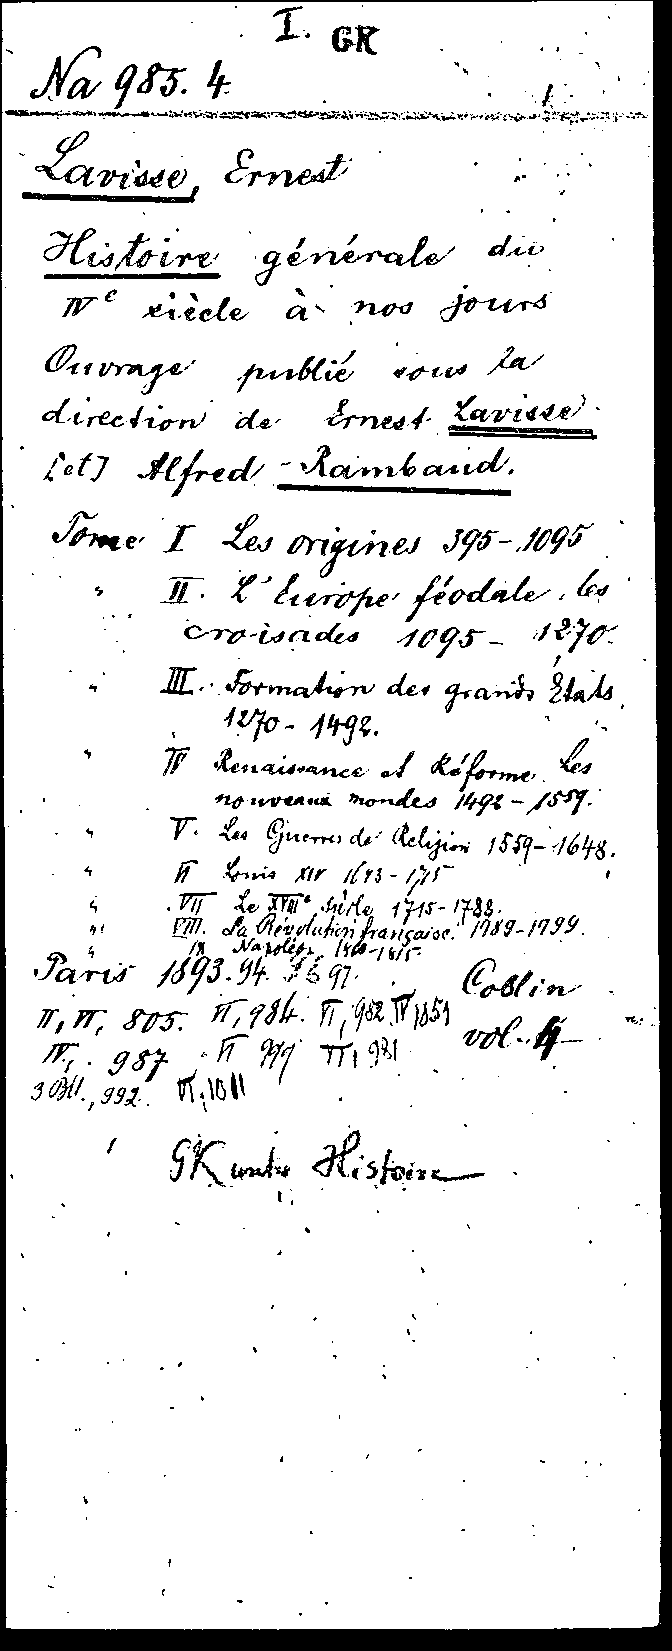 I. GK
Na 985. 4.
Lavisse, Ernest
Histoire générale du
IVe siècle à nos jours
Ouvrage publié sous la
direction de Ernest Lavisse
[et] Alfred Rambaud.
Tome I Les origines 395-1095
" II. L'Europe féodale, les
croisades 1095-1270.
" III. Formation des grands États
1270-1492.
" IV Renaissance et Réforme. Les
nouveaux mondes 1492-1559.
" V. Les Guerres de Religion 1559-1648.
" VI Louis XIV 1643-1715
" VII Le XVIIIe siècle 1715-1788.
" VIII. La Révolution française. 1789-1799.
" IX Napoléon, 1800-1815.
Paris 1893.94. 97.
Coblin
II, VI, 805. VI, 984. VI, 982 IV 1851
vol. 4
IV, 987 VI 991 VI, 981
3 Bll., 992. VI, 1011
GK unter Histoire